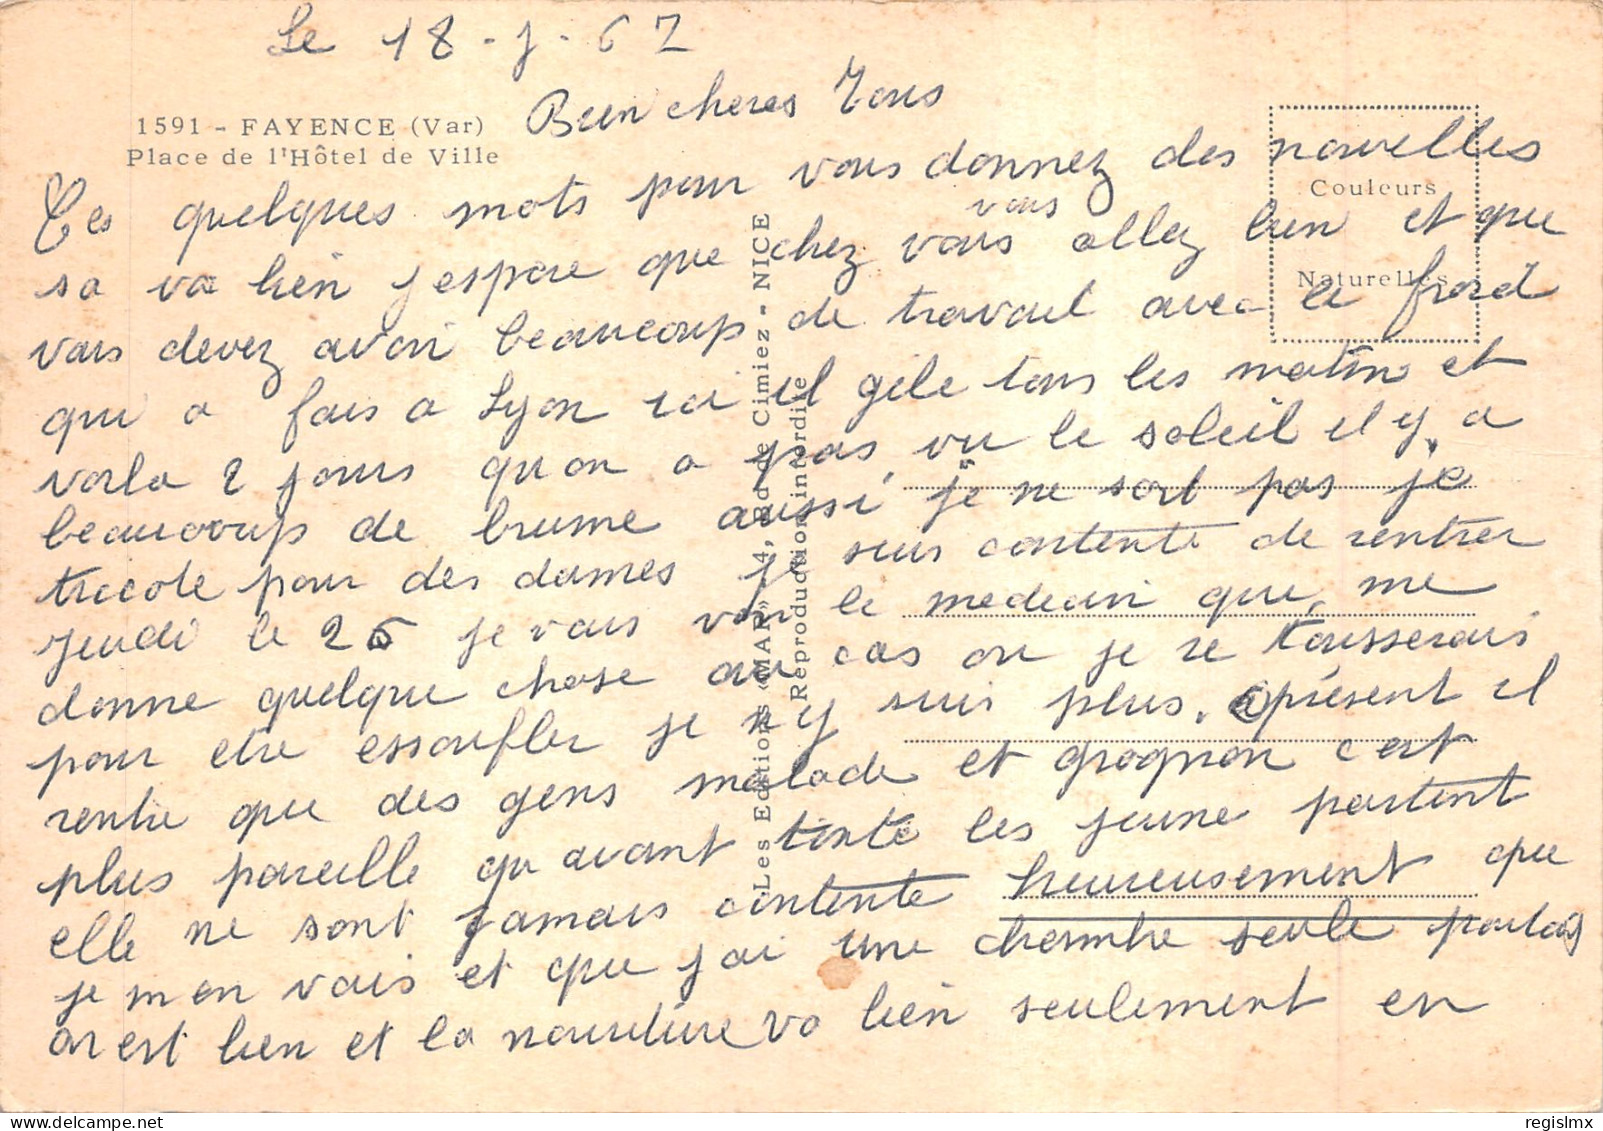 Le 18-1-67
Bien cheres Tous
1591 - FAYENCE (Var)
Place de l'Hôtel de Ville
Couleurs
Naturelles
Ces quelques mots pour vous donnez des nouvelles
sa va bien j espere que chez vous vous allez bien et que
vous devez avoir beaucoup de travail avec le froid
qui a fais a Lyon ici il gele tous les matin et
voila 2 jours qu on a pas vu le soleil il y a
beaucoup de brume aussi je ne sort pas je
tricote pour des dames je suis contente de rentrer
jeudi le 26 je vais voir le medecin que me
donne quelque chose au cas ou je re tousserais
pour etre essoufler je n y suis plus. apresent il
rentre que des gens malade et grognon c est
plus pareille qu avant toute les jeune partent
elle ne sont jamais contente heureusement que
je m en vais et que j ai une chembre seule
on est bien et la nourriture va bien seulement en
Les Editions «MAR» - 4, Bd de Cimiez - NICE
Reproduction interdite
regislmx